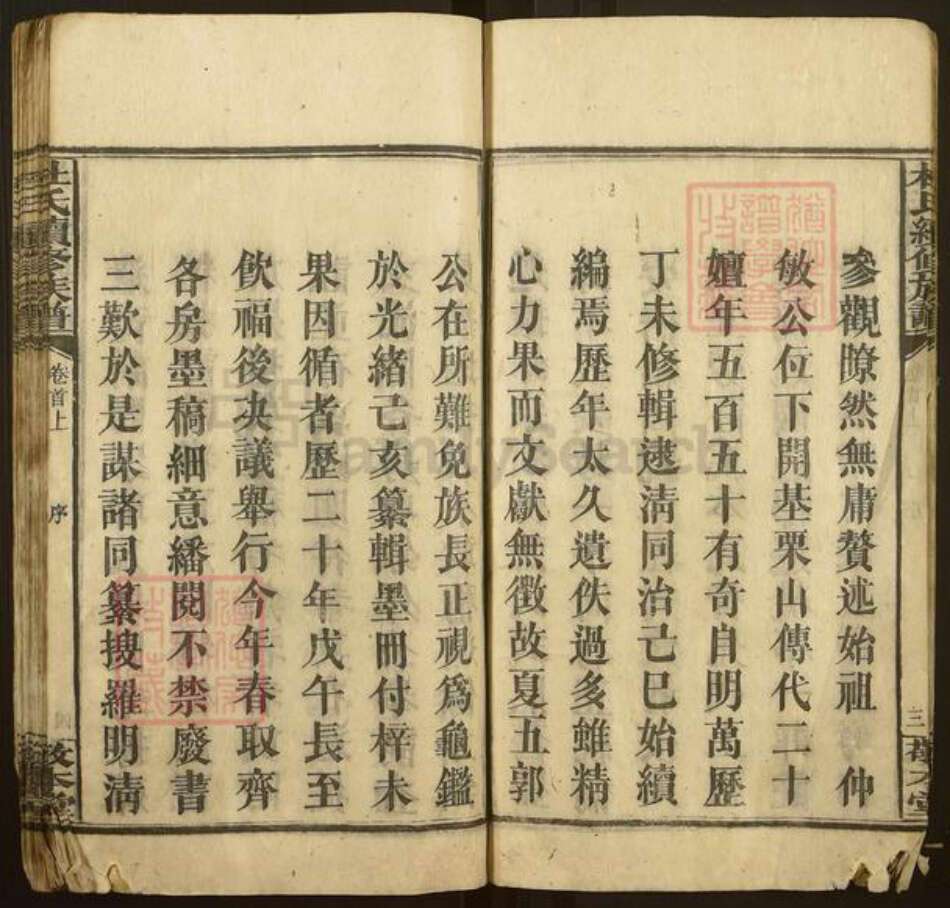 參觀瞭然無庸贅述始祖 仲
敏公位下開基栗山傳代二十
嬗年五百五十有奇自明萬歷
丁未修輯逮淸同治己巳始續
編焉歷年太久遺佚過多雖精
心力果而文獻無徵故夏五郭
公在所難免族長正視爲龜鑑
於光緒己亥纂輯墨冊付梓未
果因循者歷二十年戊午長至
飮福後决議舉行今年春取齊
各房墨稿細意繙閱不禁廢書
三歎於是謀諸同纂搜羅明淸
杜氏續修族譜
卷首上
序
杜氏續修族譜
三
FamilySearch